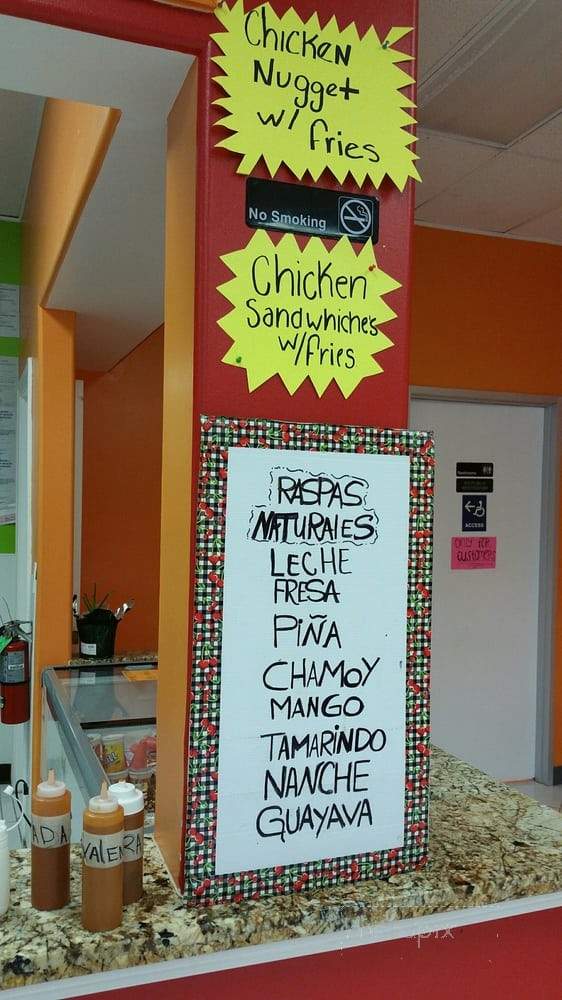 Chicken
Nugget
w/ fries
No Smoking
Chicken
Sandwhiche's
w/fries
RASPAS
NATURALES
LECHE
FRESA
PIÑA
CHAMOY
MANGO
TAMARINDO
NANCHE
GUAYAVA
ACCESS
ONLY FOR
CUSTOMERS
ADA
VALEN
RA